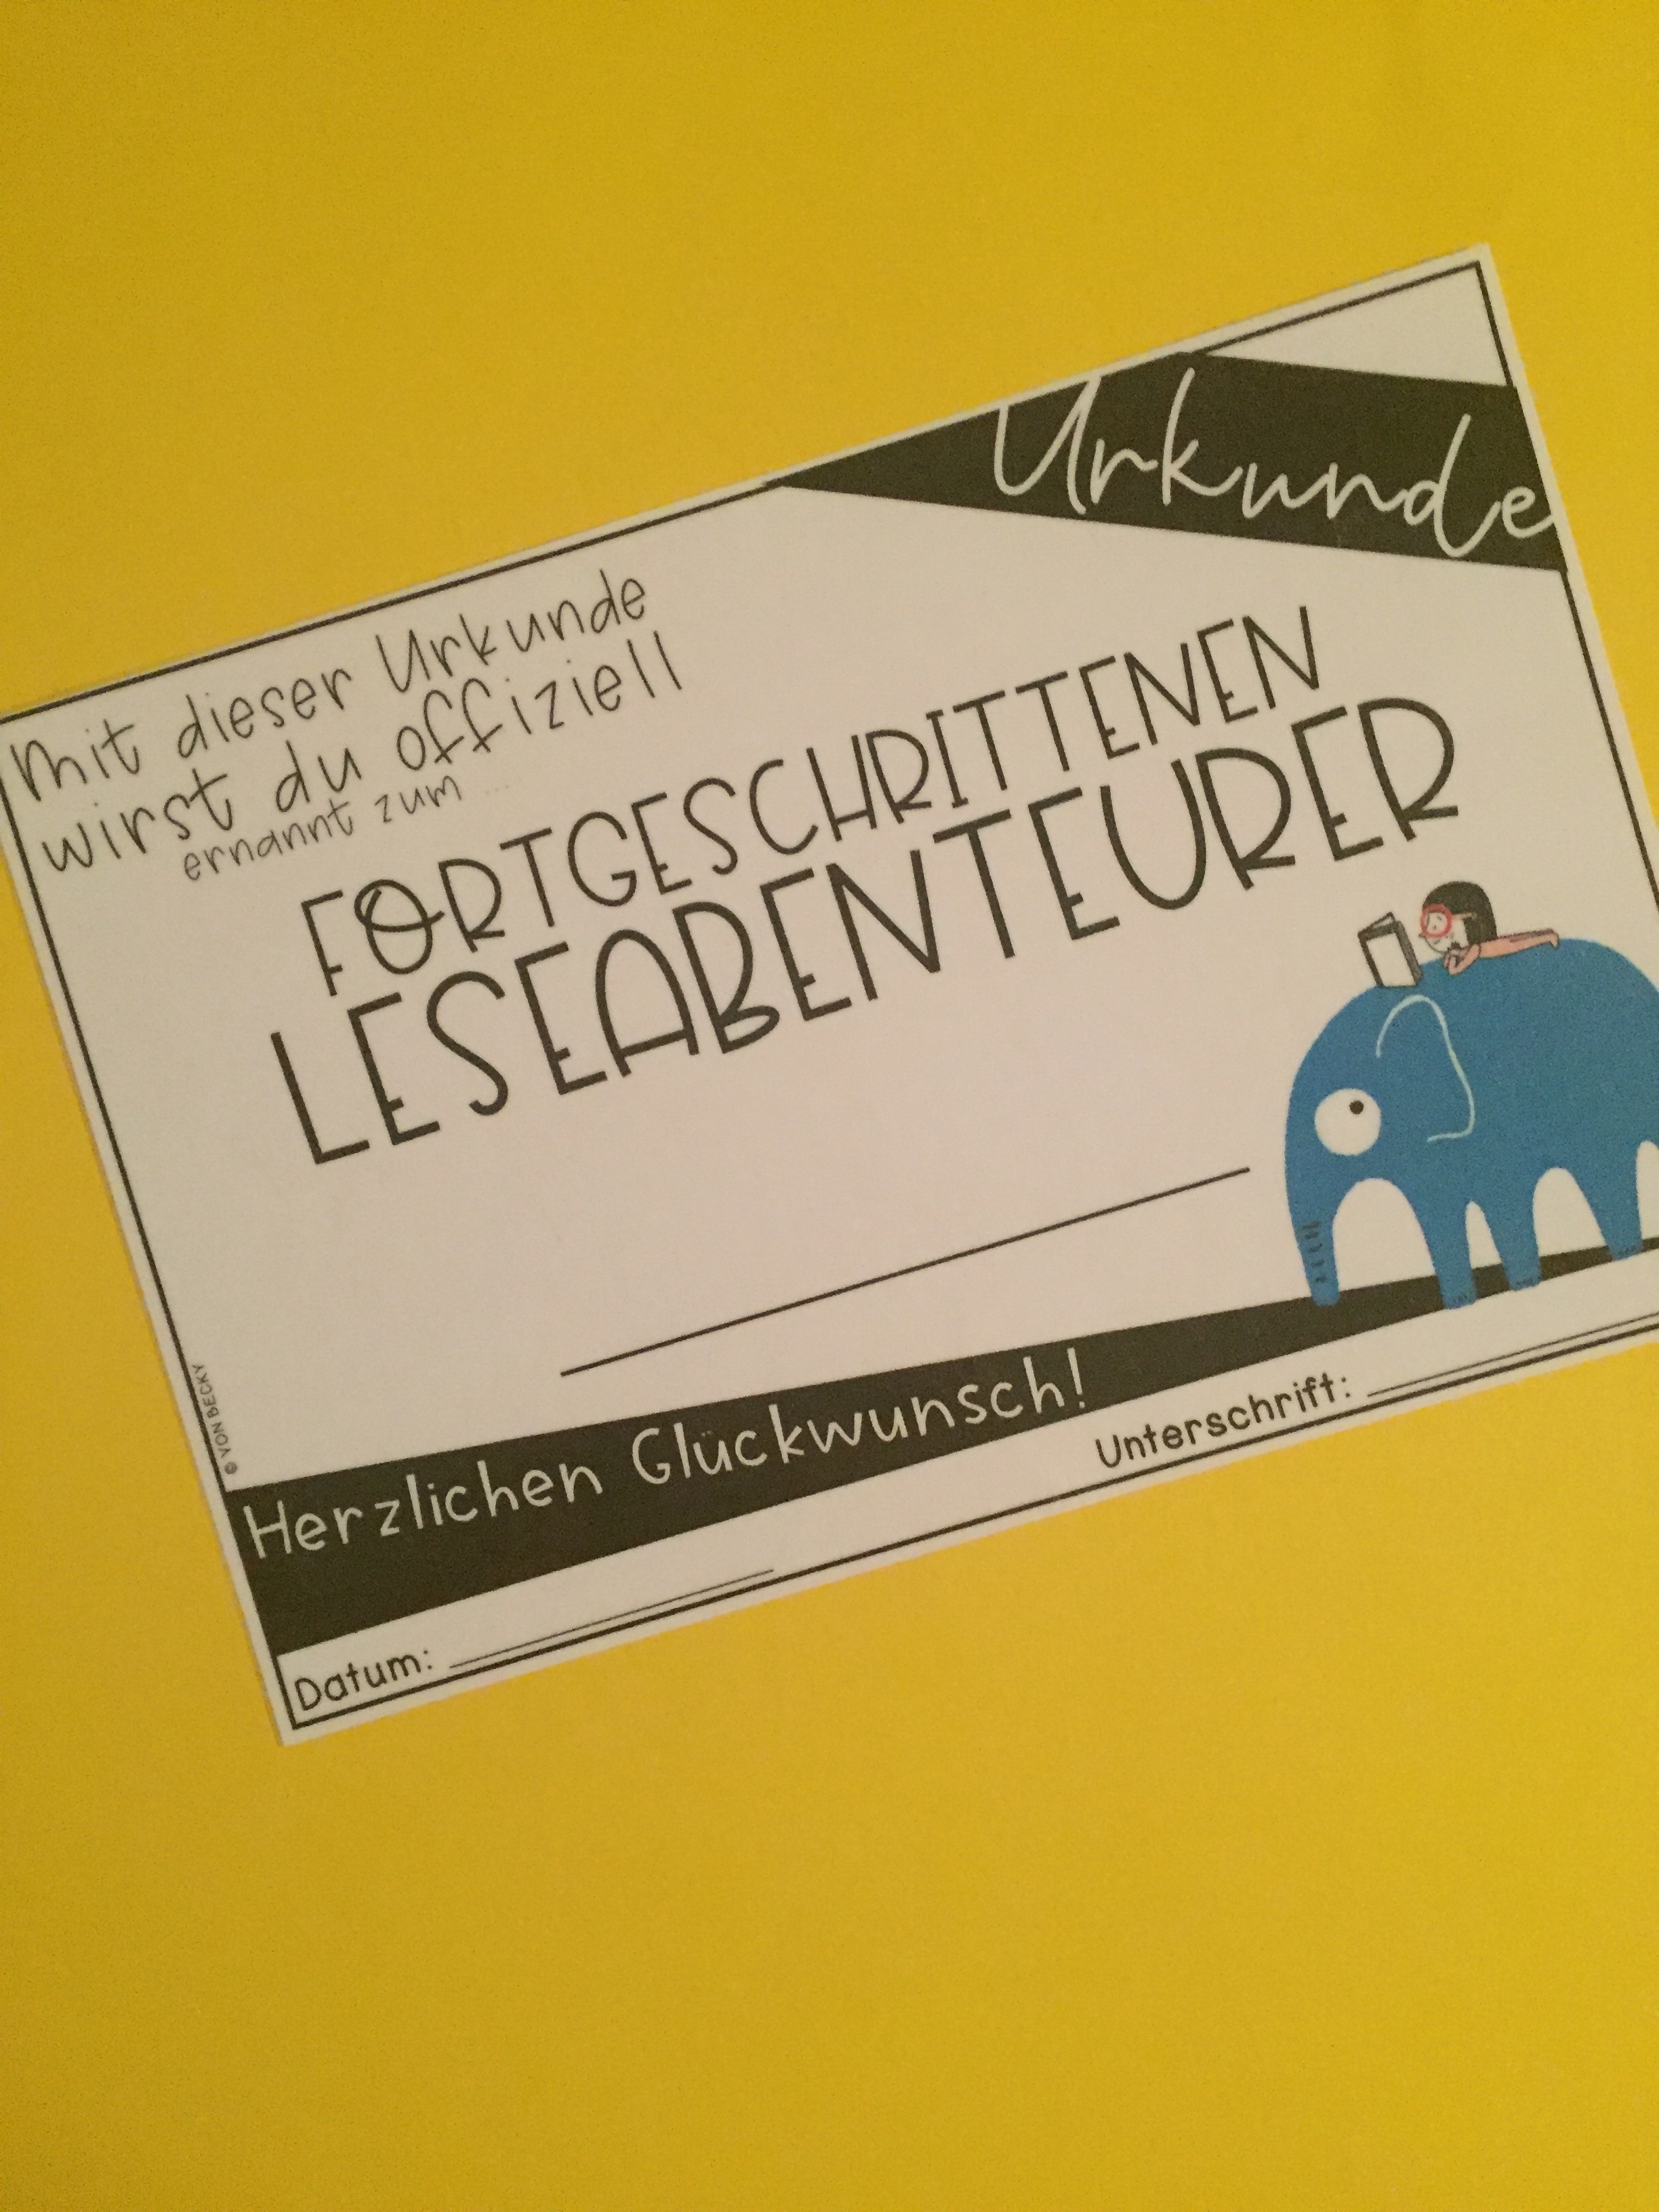 Urkunde
Mit dieser Urkunde
wirst du offiziell
ernannt zum ...
FORTGESCHRITTENEN
LESEABENTEURER
© VON BECKY
Herzlichen Glückwunsch!
Datum:
Unterschrift: